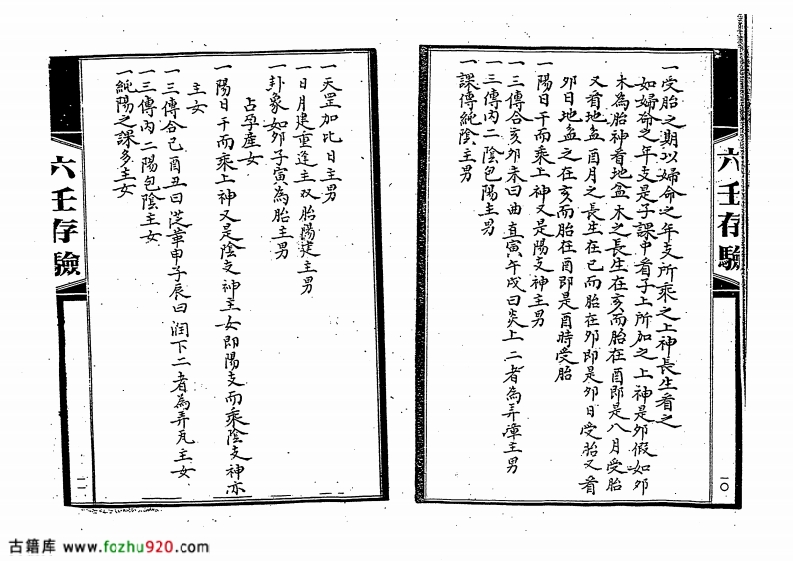 六壬存驗
一〇
一受胎之期以婦命之年支所乘之上神長生看之
如婦命之年支是子課中看子上所加之上神是卯假如卯
木為胎神看地盆木之長生在亥而胎在酉即是八月受胎
又看地盆酉月之長生在巳而胎在卯即是卯日受胎又看
卯日地盆之在亥而胎在酉即是酉時受胎
一陽日干而乘上神又是陽支神主男
一三傳合亥卯未曰曲直寅午戌曰炎上二者為弄璋主男
一三傳內二陰包陽主男
一課傳純陰主男
一天罡加比日主男
一日月建重逢主双胎陽建主男
一卦象如卯子寅為胎主男
占孕產女
一陽日干而乘上神又是陰支神主女即陽支而乘陰支神亦
主女
一三傳合巳酉丑曰從革申子辰曰潤下二者為弄瓦主女
一三傳內二陽包陰主女
一純陽之課多主女
六壬存驗
一一
古籍库 www.fozhu920.com